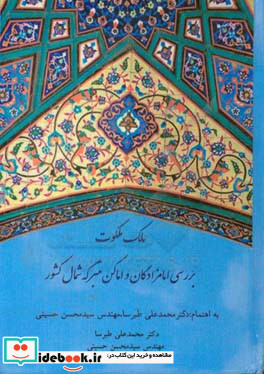 ملک ملکوت
بررسی امامزادگان و اماکن متبرکه شمال کشور
به اهتمام: دکتر محمدعلی طبرسا، مهندس سیدمحسن حسینی
دکتر محمدعلی طبرسا
مهندس سیدمحسن حسینی
ایده بوک
مشاهده و خرید این کتاب در:
idebook.ir